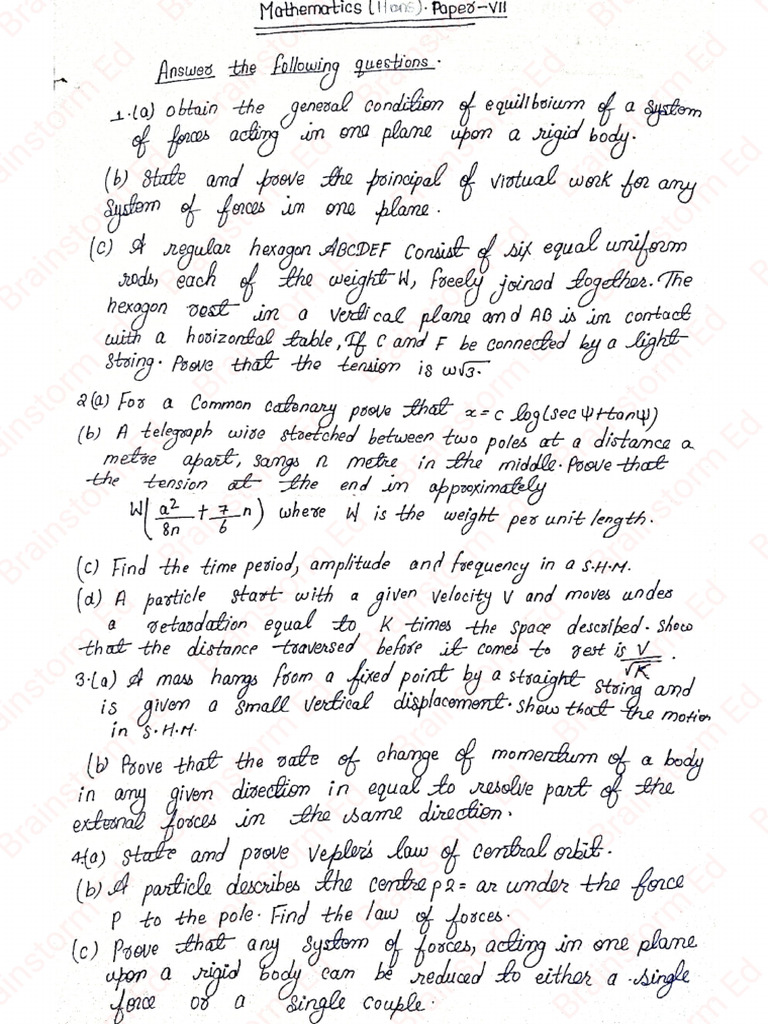 Mathematics (Hons). Paper-VII
Answer the following questions.
1.(a) obtain the general condition of equilibrium of a system
of forces acting in one plane upon a rigid body.
(b) State and prove the principal of virtual work for any
system of forces in one plane.
(c) A regular hexagon ABCDEF consist of six equal uniform
rods, each of the weight W, freely joined together. The
hexagon rest in a vertical plane and AB is in contact
with a horizontal table, If C and F be connected by a light
string. Prove that the tension is w√3.
2(a) For a common catenary prove that x = c log(sec ψ + tan ψ)
(b) A telegraph wire stretched between two poles at a distance a
metre apart, sangs n metre in the middle. Prove that
the tension at the end in approximately
W(a²/8n + 7/6 n) where W is the weight per unit length.
(c) Find the time period, amplitude and frequency in a S.H.M.
(d) A particle start with a given velocity V and moves under
a retardation equal to K times the space described. Show
that the distance traversed before it comes to rest is V/√K.
3.(a) A mass hangs from a fixed point by a straight string and
is given a small vertical displacement. Show that the motion
in S.H.M.
(b) Prove that the rate of change of momentum of a body
in any given direction in equal to resolve part of the
external forces in the same direction.
4(a) State and prove Vepler's law of central orbit.
(b) A particle describes the centre p2 = ar under the force
P to the pole. Find the law of forces.
(c) Prove that any system of forces, acting in one plane
upon a rigid body can be reduced to either a single
force or a single couple.
Brainstorm Ed